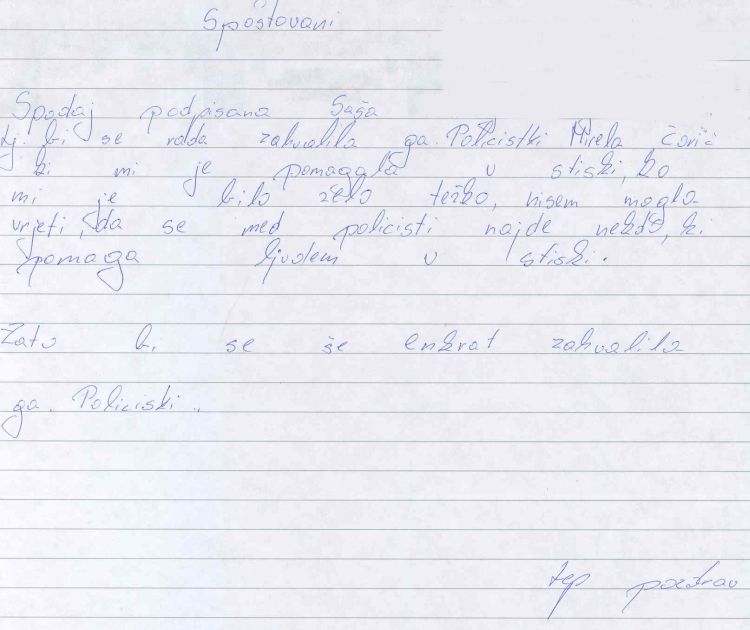 Spoštovani
Spodaj podpisana Saša
bi se rada zahvalila ga. Policistki Mirela Čorić
ki mi je pomaggla v stiski, ko
mi je bilo zelo težko, nisem mogla
vrjeti, da se med policisti najde nekdo, ki
pomaga ljudem v stiski.
Zato bi se še enkrat zahvalila
ga. Policiski.
lep pozdrav